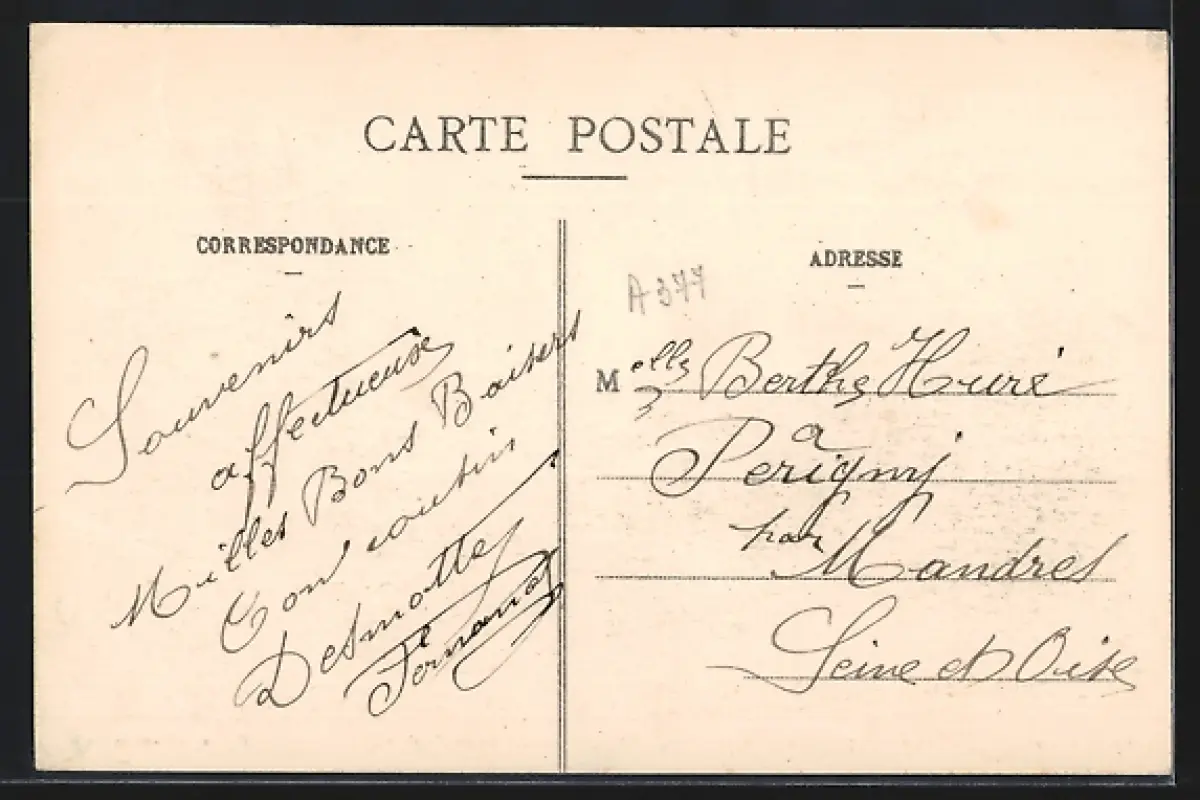 CARTE POSTALE
CORRESPONDANCE
Souvenirs
affectueuse
Milles Bons Baisers
Ton cousin
Desmottes
Fernand
ADRESSE
A377
Melle Berthe Huré
a
Perigny
par Mandres
Seine et Oise